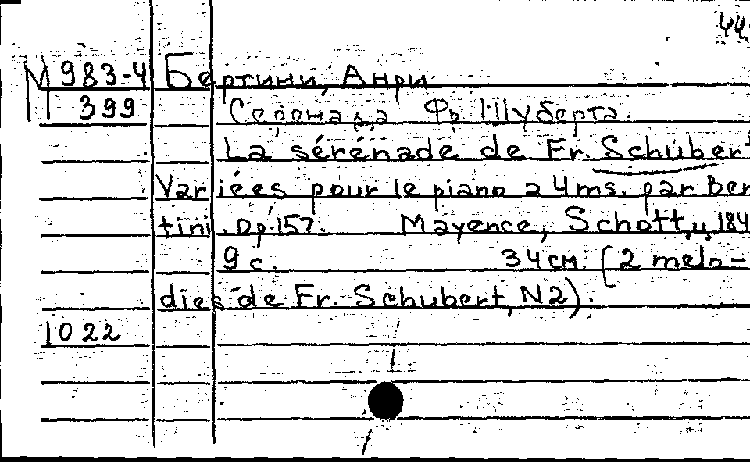 44
М 983-4 Бертини, Анри
399 Серенада Фр. Шуберта.
La sérénade de Fr. Schuber
Variées pour le piano a 4 ms. par Ber
tini. Op. 157. Mayence, Schott, 184
9 с. 34 см. (2 melo-
dies de Fr. Schubert, N2).
1022